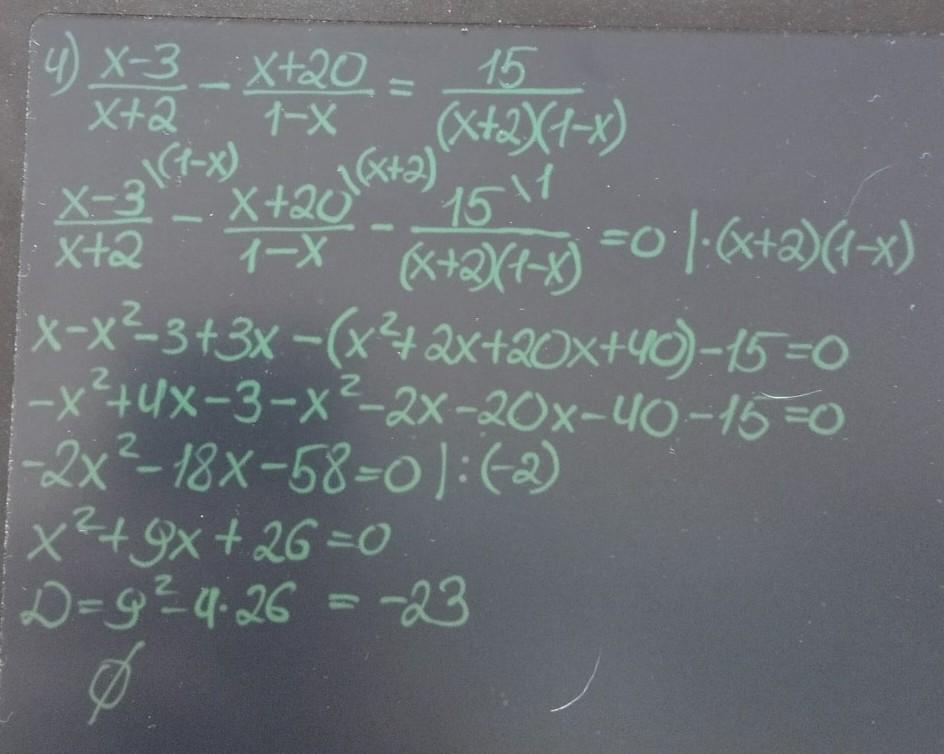 4) (x-3)/(x+2) - (x+20)/(1-x) = 15/((x+2)(1-x))
(x-3)/(x+2) \(1-x) - (x+20)/(1-x) \(x+2) - 15/((x+2)(1-x)) \1 =0 |·(x+2)(1-x)
x-x²-3+3x-(x²+2x+20x+40)-15=0
-x²+4x-3-x²-2x-20x-40-15=0
-2x²-18x-58=0 |:(-2)
x²+9x+26=0
D=9²-4·26 = -23
∅